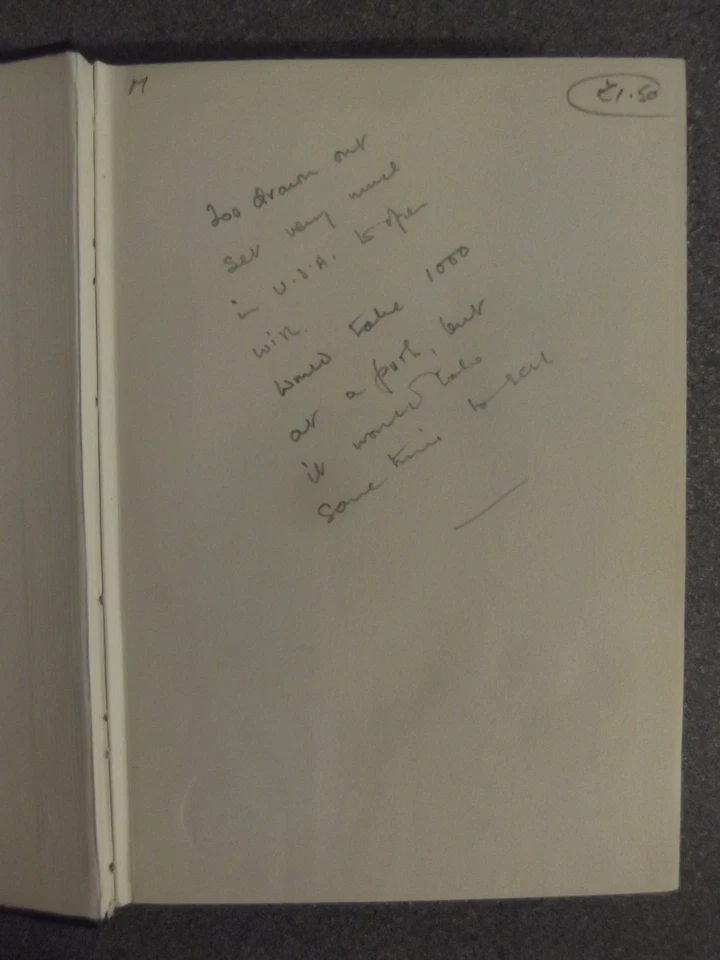 M
£1.50
Too drawn out
Set very much
in U.S.A. to open
with.
Would take 1000
at a push, but
it would take
some time to sell